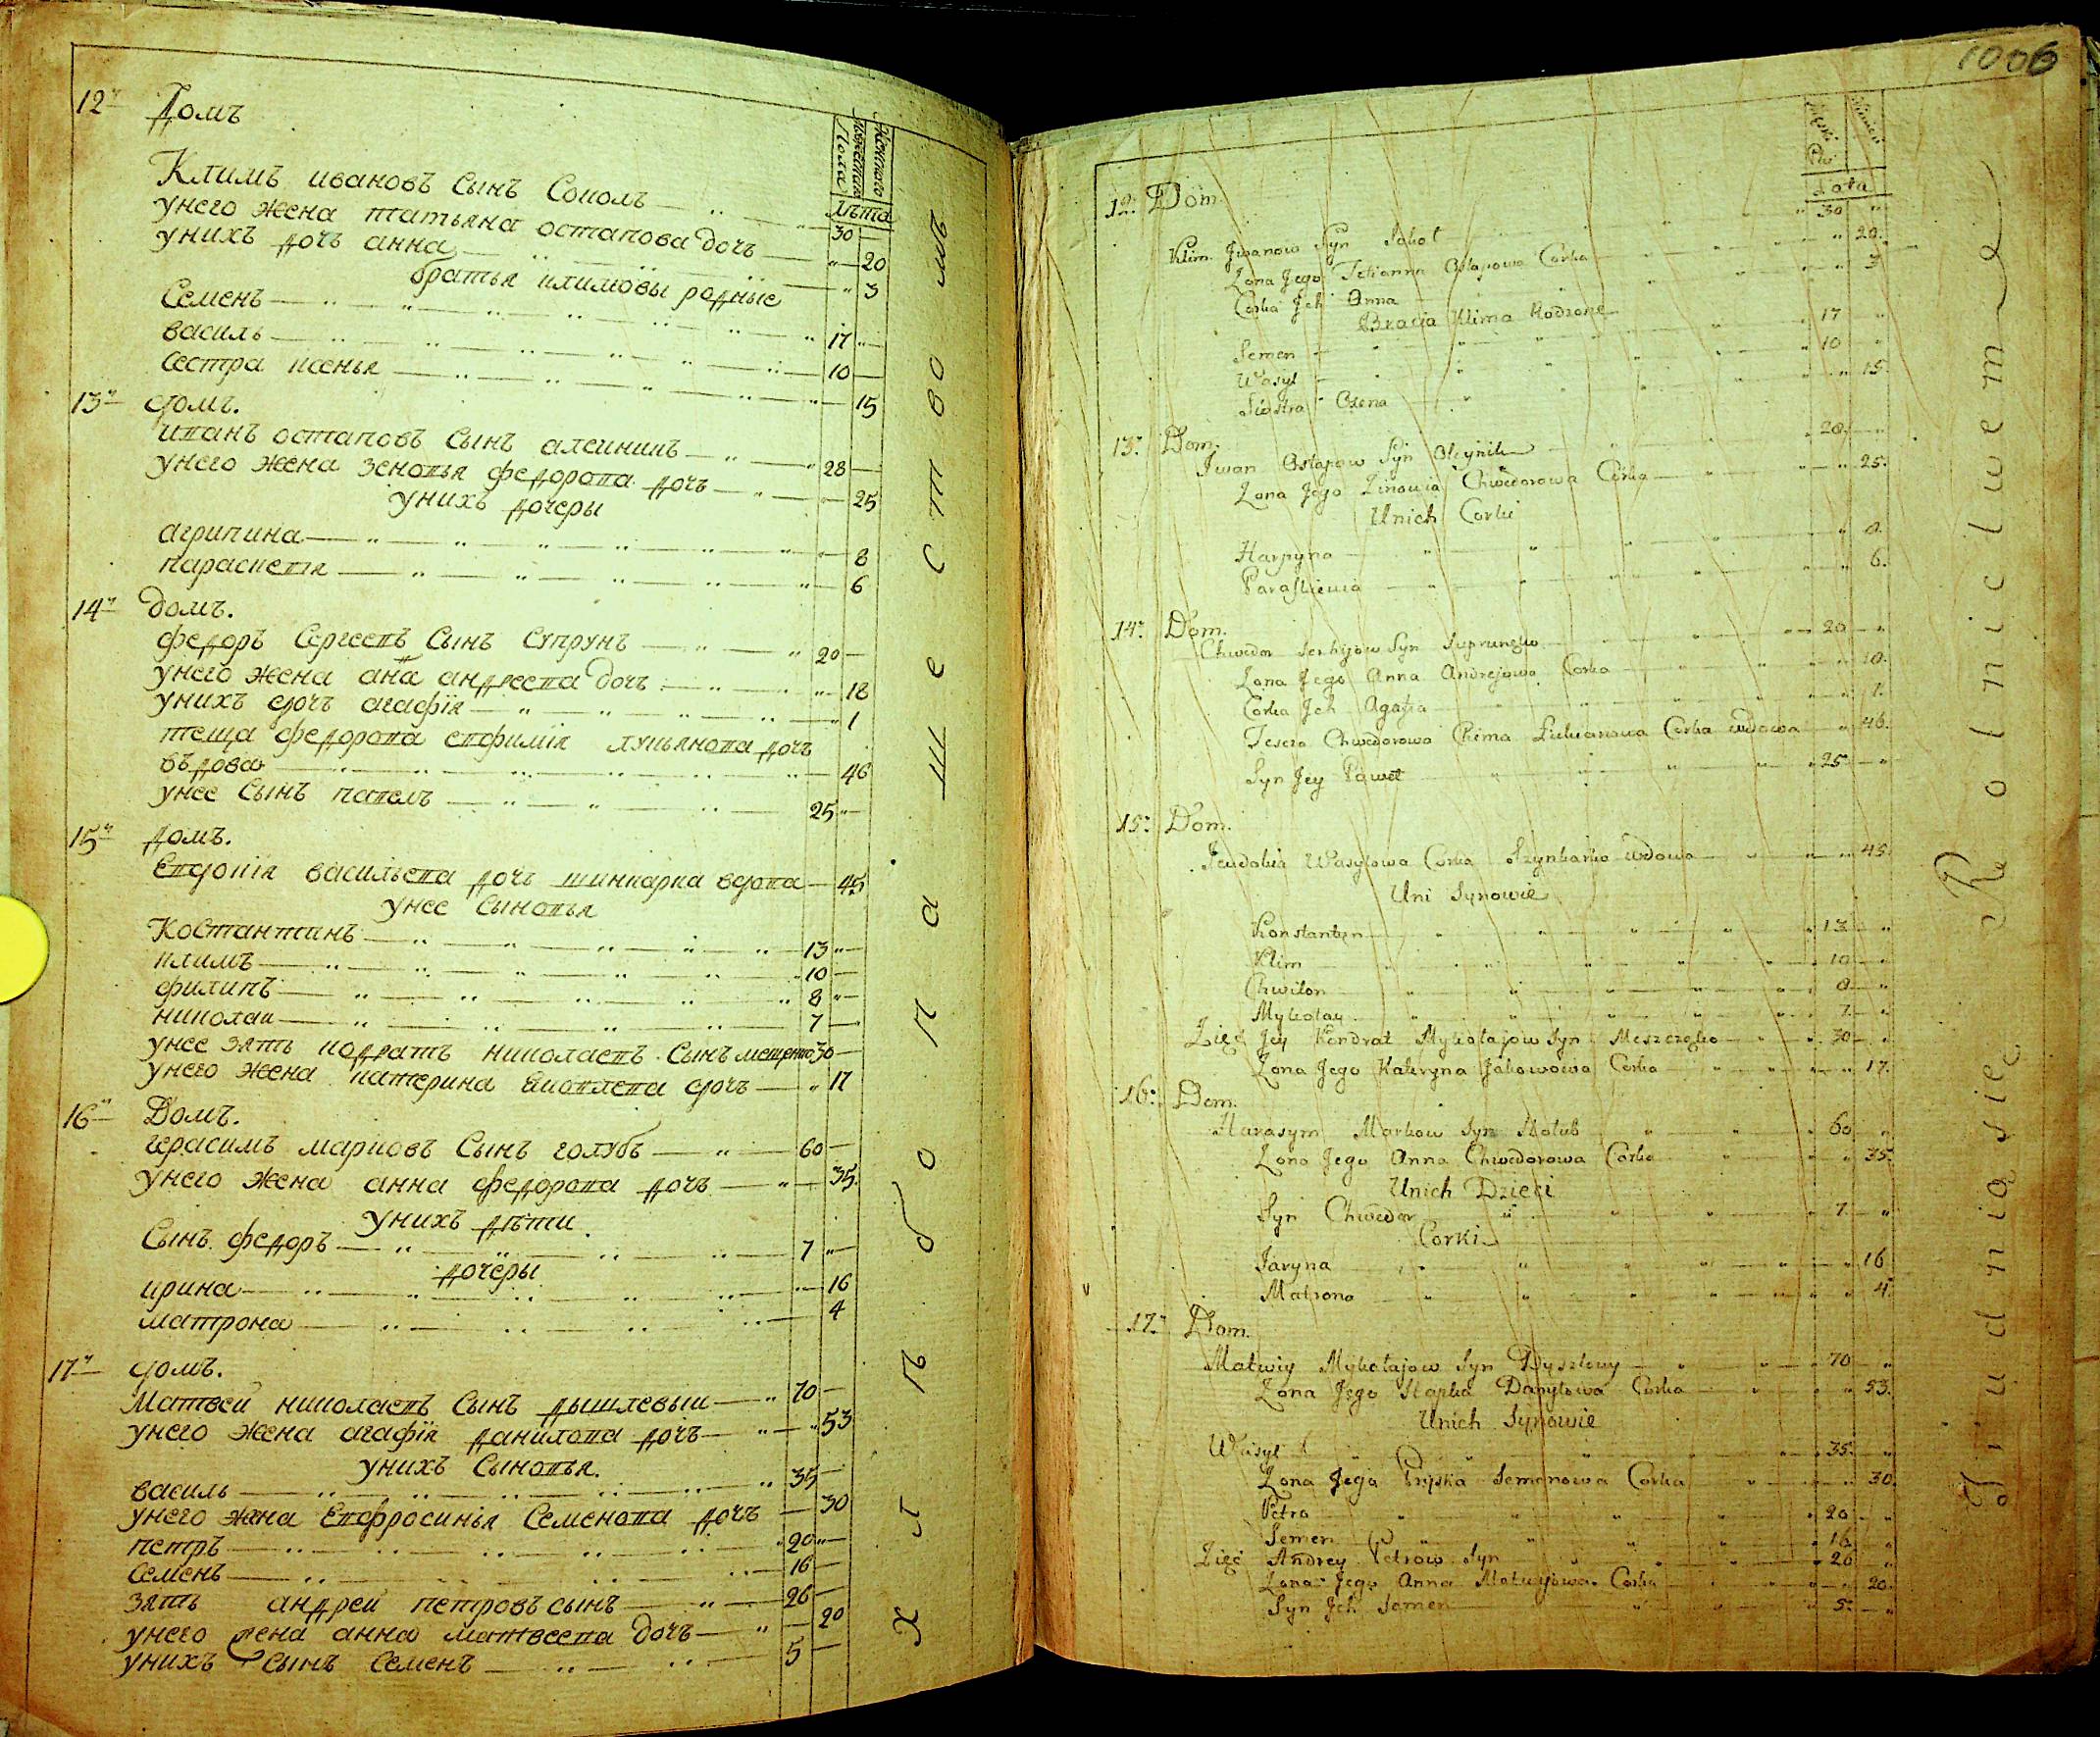 12й Домъ
Мужескаго Пола
Женскаго
Лѣта
Климъ ивановъ Сынъ Соколъ 30
унего жена татьяна остапова дочъ 20
унихъ дочъ анна 3
братья климовы родные
Семенъ 17
василь 10
сестра ксенья 15
13й домъ.
иванъ остаповъ Сынъ алейникъ 28
унего жена зеновья федорова дочъ 25
унихъ дочеры
агрипина 8
параскевя 6
14й домъ.
федоръ Сергеевъ Сынъ Супрунъ 20
унего жена ана андреева дочъ 18
унихъ дочъ агафія 1
теща федорова евфимія лукьянова дочъ
въдова 46
унее Сынъ павелъ 25
15й домъ.
Евдокія васильева дочъ шинкарка вдова 45
унее Сыновья
Костантинъ 13
климъ 10
филипъ 8
николаи 7
унее зять кодратъ николаевъ Сынъ мещенко 30
унего жена катерина яковлева дочъ 17
16й Домъ.
герасимъ марковъ Сынъ голубъ 60
унего жена анна федорова дочъ 35.
унихъ дѣти
Сынъ федоръ 7
дочеры
ирина 16
матрона 4
17й домъ.
Матвеи николаевъ Сынъ дышлевыи 70
унего жена агафія данилова дочъ 53
унихъ Сыновья.
василь 35
унего жена Евфросинья Семенова дочъ 30
петръ 20
Семенъ 16
зять андреи петровъ сынъ 26
унего жена анна матвеева дочъ 20
унихъ Сынъ Семенъ 5
хлѣбопашеством
1006
12. Dom
Lata
Klim Jwanow Syn Sokoł 30
Zona Jego Tetianna Ostapowa Corka 20.
Corka Jch Anna 3
Bracia Klima Rodzone
Semen 17
Wasyl 10
Siostra Oxena 15.
13. Dom.
Jwan Ostapow Syn Oleynik 28
Zona Jego Zinowia Chwedorowa Corka 25.
Unich Corki
Harpyna 8.
Paraskiewia 6.
14. Dom.
Chwedor Serhijow Syn Suprunenko 20
Zona Jego Anna Andrejowa Corka 18.
Corka Jch Agafia 1.
Tescza Chwedorowa Chima Lukianowa Corka wdowa 46.
Syn Jey Paweł 25
15. Dom.
Jewdokia Wasylowa Corka Szynkarka wdowa 45.
Uni Synowie
Konstantyn 13
Klim 10
Chwilon 8
Mykołay 7.
Zięć Jey Kondrat Mykołajow Syn Meszczenko 30
Zona Jego Kateryna Jakowowa Corka 17.
16. Dom.
Harasym Markow Syn Hołub 60
Zona Jego Anna Chwedorowa Corka 35.
Unich Dzieci
Syn Chwedor 7
Corki
Jaryna 16
Matrona 4.
17. Dom.
Matwiy Mykołajow Syn Dyszlowy 70
Zona Jego Hapka Danyłowa Corka 53.
Unich Synowie
Wasyl 35.
Zona Jego Pryska Semenowa Corka 30.
Petro 20
Semen 16
Zięć Andrey Petrow Syn 26
Zona Jego Anna Matwijowa Corka 20.
Syn Jch Semen 5.
Trudnią się Rolnictwem